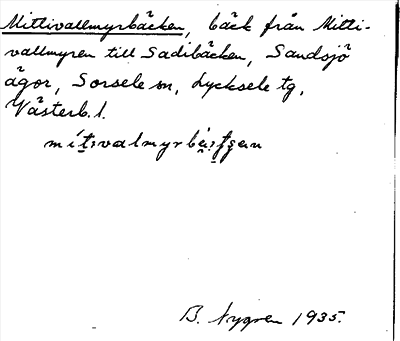 Mittivallmyrbäcken, bäck från Mitti-
vallmyren till Sadibäcken, Sandsjö
ägor, Sorsele sn, Lycksele tg,
Västerb. l.
B. Nygren 1935.